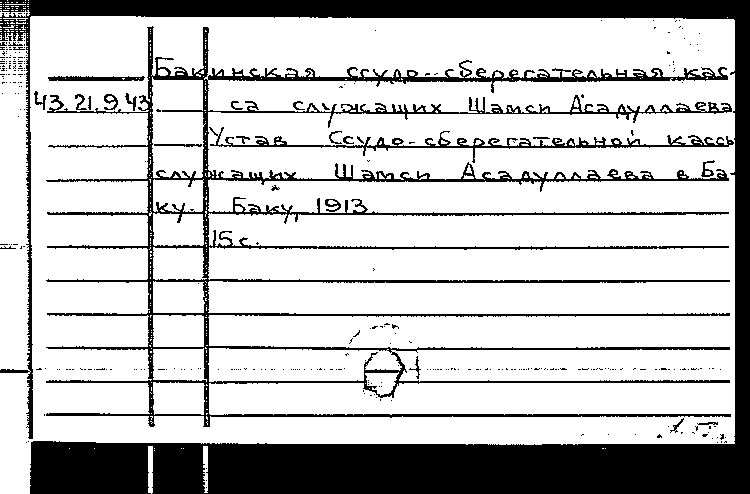 Бакинская ссудо-сберегательная кас-
43.21.9.43 са служащих Шамси Асадуллаева
Устав Ссудо-сберегательной кассы
служащих Шамси Асадуллаева в Ба-
ку. Баку, 1913.
15 с.